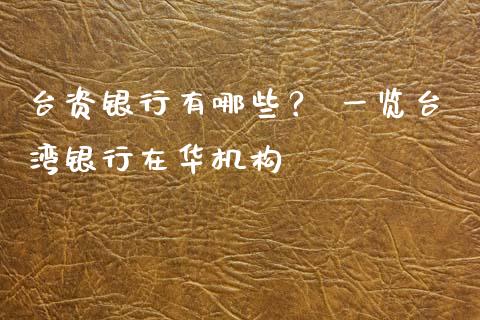 台资银行有哪些? 一览台
湾银行在华机构